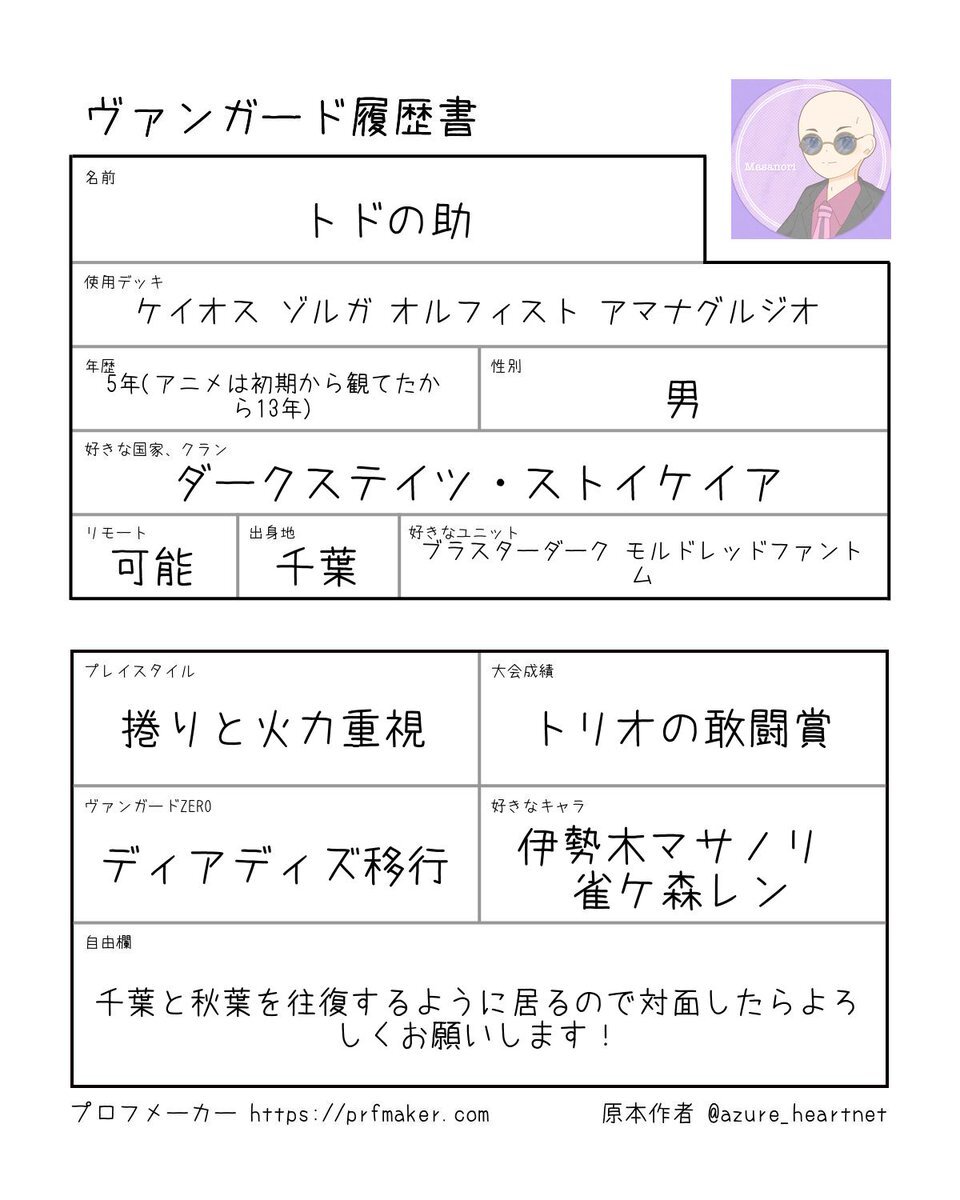 ヴァンガード履歴書
Masanori
名前
トドの助
使用デッキ
ケイオス ゾルガ オルフィスト アマナグルジオ
年歴
5年(アニメは初期から観てたか
ら13年)
性別
男
好きな国家、クラン
ダークステイツ・ストイケイア
リモート
可能
出身地
千葉
好きなユニット
ブラスターダーク モルドレッドファント
ム
プレイスタイル
捲りと火力重視
大会成績
トリオの敢闘賞
ヴァンガードZERO
ディアディズ移行
好きなキャラ
伊勢木マサノリ
雀ケ森レン
自由欄
千葉と秋葉を往復するように居るので対面したらよろ
しくお願いします！
プロフメーカー https://prfmaker.com
原本作者 @azure_heartnet